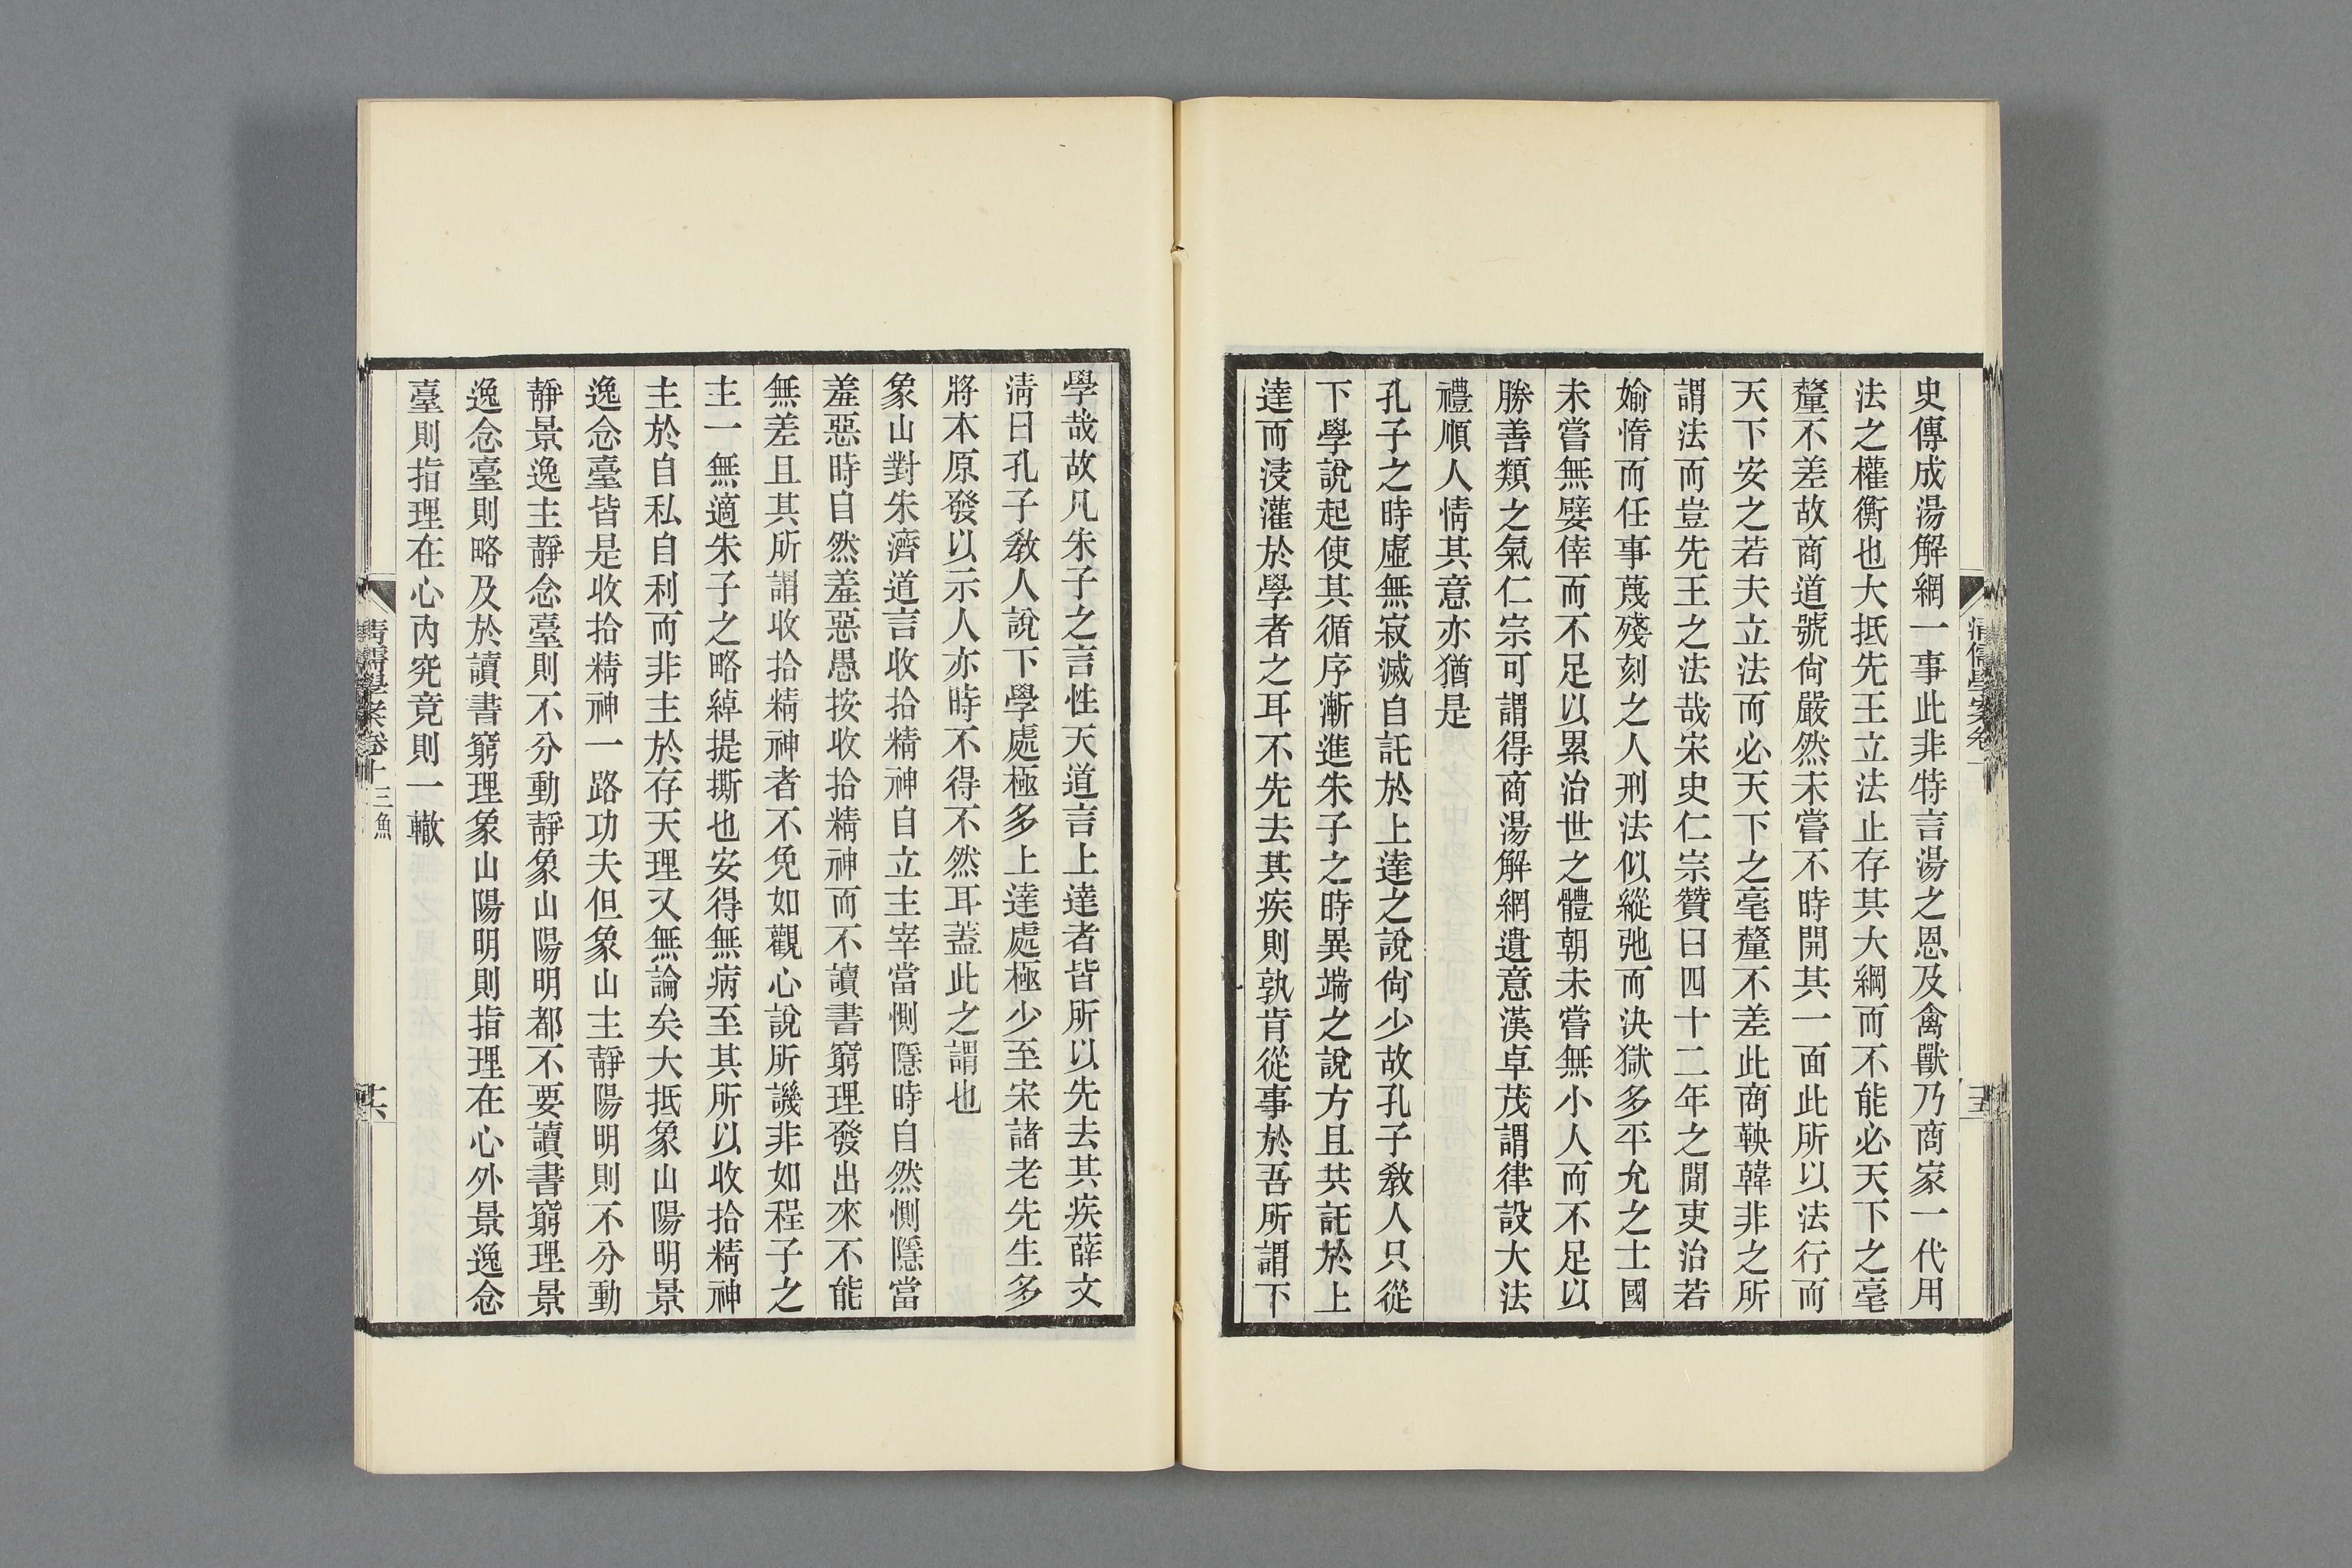 史傳成湯解網一事此非特言湯之恩及禽獸乃商家一代用
法之權衡也大抵先王立法止存其大綱而不能必天下之毫
釐不差故商道號尙嚴然未嘗不時開其一面此所以法行而
天下安之若夫立法而必天下之毫釐不差此商鞅韓非之所
謂法而豈先王之法哉宋史仁宗贊曰四十二年之閒吏治若
媮惰而任事蔑殘刻之人刑法似縱弛而決獄多平允之士國
未嘗無嬖倖而不足以累治世之體朝未嘗無小人而不足以
勝善類之氣仁宗可謂得商湯解網遺意漢卓茂謂律設大法
禮順人情其意亦猶是
孔子之時虛無寂滅自託於上達之說尙少故孔子敎人只從
下學說起使其循序漸進朱子之時異端之說方且共託於上
達而浸灌於學者之耳不先去其疾則孰肯從事於吾所謂下
學哉故凡朱子之言性天道言上達者皆所以先去其疾薛文
淸曰孔子敎人說下學處極多上達處極少至宋諸老先生多
將本原發以示人亦時不得不然耳蓋此之謂也
象山對朱濟道言收拾精神自立主宰當惻隱時自然惻隱當
羞惡時自然羞惡愚按收拾精神而不讀書窮理發出來不能
無差且其所謂收拾精神者不免如觀心說所譏非如程子之
主一無適朱子之略綽提撕也安得無病至其所以收拾精神
主於自私自利而非主於存天理又無論矣大抵象山陽明景
逸念臺皆是收拾精神一路功夫但象山主靜陽明則不分動
靜景逸主靜念臺則不分動靜象山陽明都不要讀書窮理景
逸念臺則略及於讀書窮理象山陽明則指理在心外景逸念
臺則指理在心內究竟則一轍
清儒學案卷十 三魚 十六